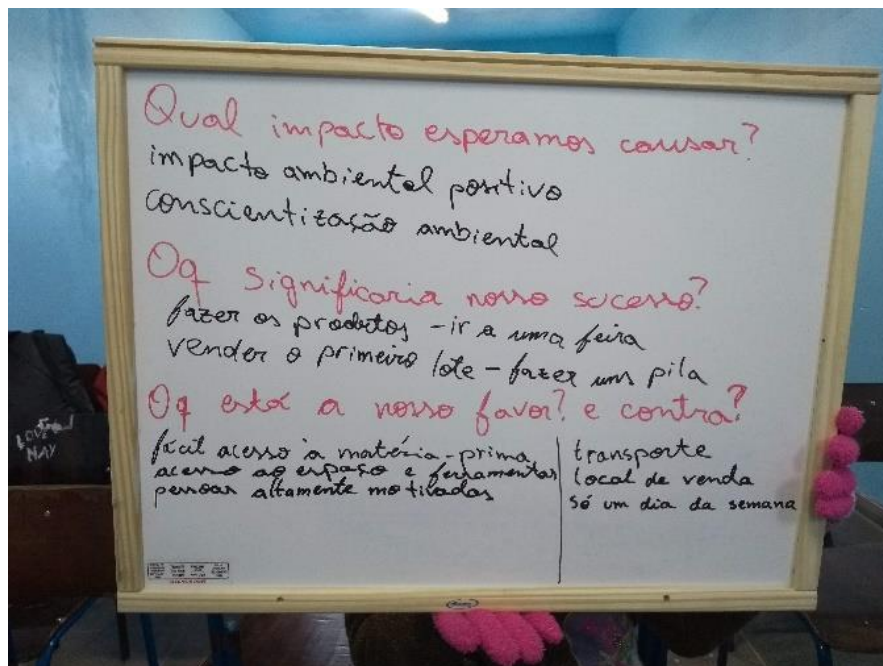 Qual impacto esperamos causar?
impacto ambiental positivo
conscientização ambiental
Oq significaria nosso sucesso?
fazer os produtos - ir a uma feira
vender o primeiro lote - fazer uns pila
Oq está a nosso favor? e contra?
fácil acesso à matéria-prima
acesso ao espaço e ferramentas
pessoas altamente motivadas
transporte
local de venda
só um dia da semana
LOVE
MAY